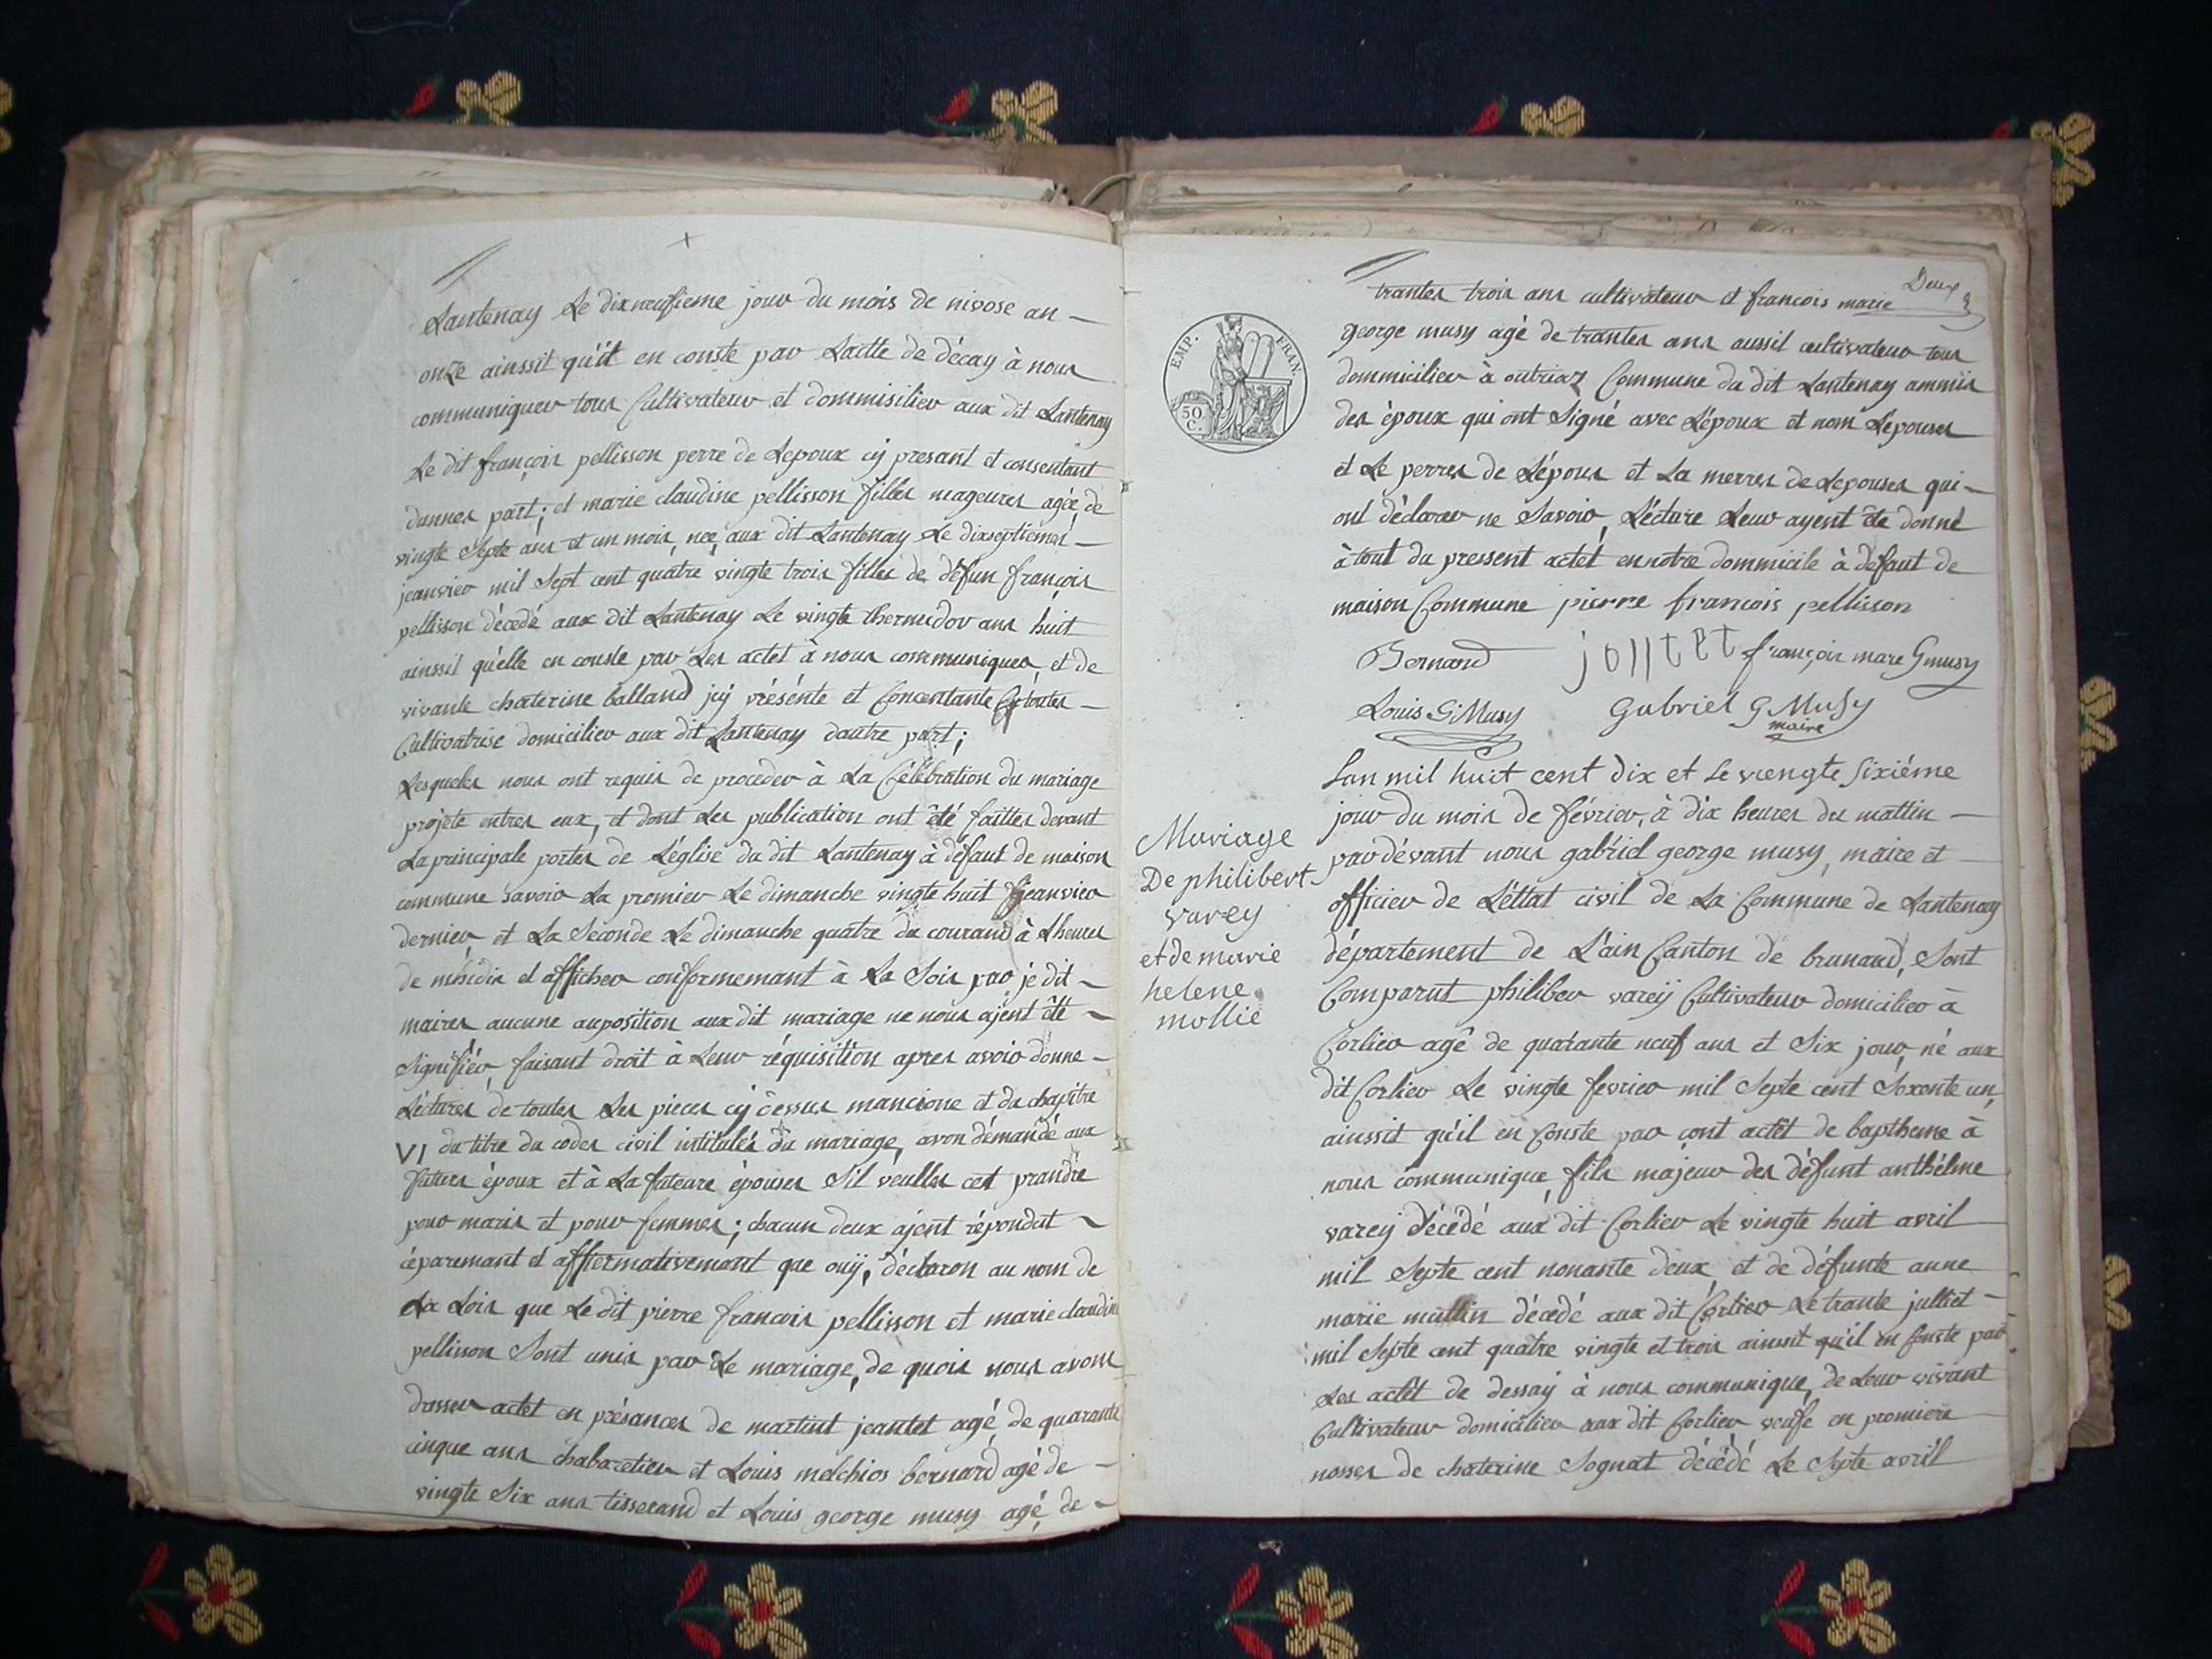 Lantenay Le dixneufieme jour du mois de nivose an
onze ainssit qu'it en conste par Laitte de décay à nous
communiquer tous Cultivateur et dommisilier aux dit Lantenay
Le dit françois pellisson perre de Lepoux cy presant et consentant
dunner part; et marie claudine pellisson filles mageures agée de
vingte septe ans et un mois, née aux dit Lantenay Le dixseptiemes
jeanvier mil Sept cent quatre vingte trois filles de défun françois
pellisson décedé aux dit Lantenay Le vingte thermidor ans huit
ainssil qu'elle en conste par Les actet à nous communiquer, et de
vivante chaterine balland jcÿ présénte et Concentante toutes
Cultivatrise domicilier aux dit Lantenay dautre part;
Lesqueles nous ont requis de proceder à La Célébration du mariage
projete entres eux, et dont Les publication ont été faittes devant
La principale portes de Léglise du dit Lantenay à défaut de maison
commune savoir La premier Le dimanche vingte huit jeanvier
dernier et La Seconde Le dimanche quatre du courand à Lheures
de mhidis et afficher conformemant à La Lois par je dit
maires aucune auposition aux dit mariage ne nous ajent été
signifiér, faisant droit à Leur réquisition apres avoir donne
Léctures de toutes Les pieces cÿ dessus mancione et du chapitre
VI du titre du codes civil intitulés du mariage, avon démandé aux
futurs époux et à La futeure épouses Sil veulles cet prandre
pour maris et pour femmes; chacun deux ajent répondut
céparemant et affiermativemant que ouÿ, déclaron au nom de
La Lois que Le dit pierre francois pellisson et marie claudine
pellisson Sont unis par Le mariage, de quois nous avons
dresser actet en présances de martint jeantet agé de quarante
cinque ans chabaretier et Louis melchios bernard agé de
vingte Six ans tisserand et Louis george musy agé de
Deux
trantes trois ans cultivateur et francois marie
george musy agé de trantes ans aussil cultivateur tous
dommicilier à outriaz Commune du dit Lantenay ammis
des époux qui ont Signé avec Lépoux et nom Lepouses
et Le perres de Lépous et La merres de Lepouses qui
ont déclarer ne Savoir, Lécture Leur ayent été donné
à tout du pressent actet en notre dommicile à défaut de
maison Commune pierre francois pellisson
EMP. FRAN
50 C.
Bernard jonttet françois mare Gmusy
Louis G Musy Gabriel G Musy
maire
Lan mil huit cent dix et Le viengte sixiéme
jour du mois de février, à dix heures du mattin
par dévant nous gabriel george musy, maire et
officier de Léttat civil de La Commune de Lantenay
département de L'ain Canton de brunaud, Sont
Comparut philiber vareÿ Cultivateur domicilier à
Corlier agé de quarante neuf ans et Six jour, né aux
dit Corlier Le vingte fevrier mil Septe cent Soxante un,
ainssit qu'il en Conste par cont actêt de baptheme à
nous communique, fils majeur des défunt anthélme
vareÿ décédé aux dit Corlier Le vingte huit avril
mil Septe cent nonante deux et de défunte anne
marie mullin décedé aux dit Corlier Le trante julliet
mil Septe cent quatre vingte et trois ainssit qu'il en Conste par
Les actêt de dessaÿ à nous communique, de Leur vivant
Cultivateur domicilier aux dit Corlier, veufe en premiere
nosses de chaterine Sognat décédé Le Septe avril
Mariage
De philibert
varey
et de marie
helene
mollie